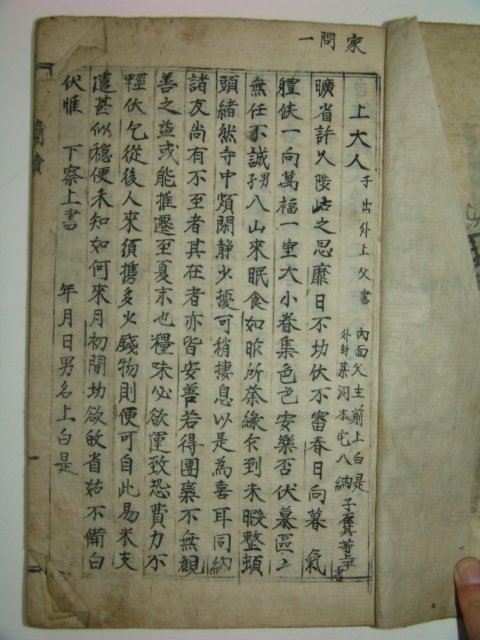 家問一
上大人 子出外上父書 內面父主前上白是 外封某洞本宅入納 子
曠省許久陟岵之思靡日不切伏不審春日向暮氣
軆候一向萬福一室大小眷集色色安樂否伏慕區區
無任不誠男子入山來眠食如昨所荼緣今到未暇整頓
頭緒然寺中頗閑静少擾可稍捿息以是為喜耳同納
諸友尚有不至者其在者亦皆安善若得團欒不無観
善之益或能推遷至夏末也糧味必欲運致恐費力不
輕伏乞從後人来須携多少錢物則便可自此易米支
遣甚似穩便未知如何來月初間切欲敀省姑不備白
伏惟 下察上書 年月日男名上白是